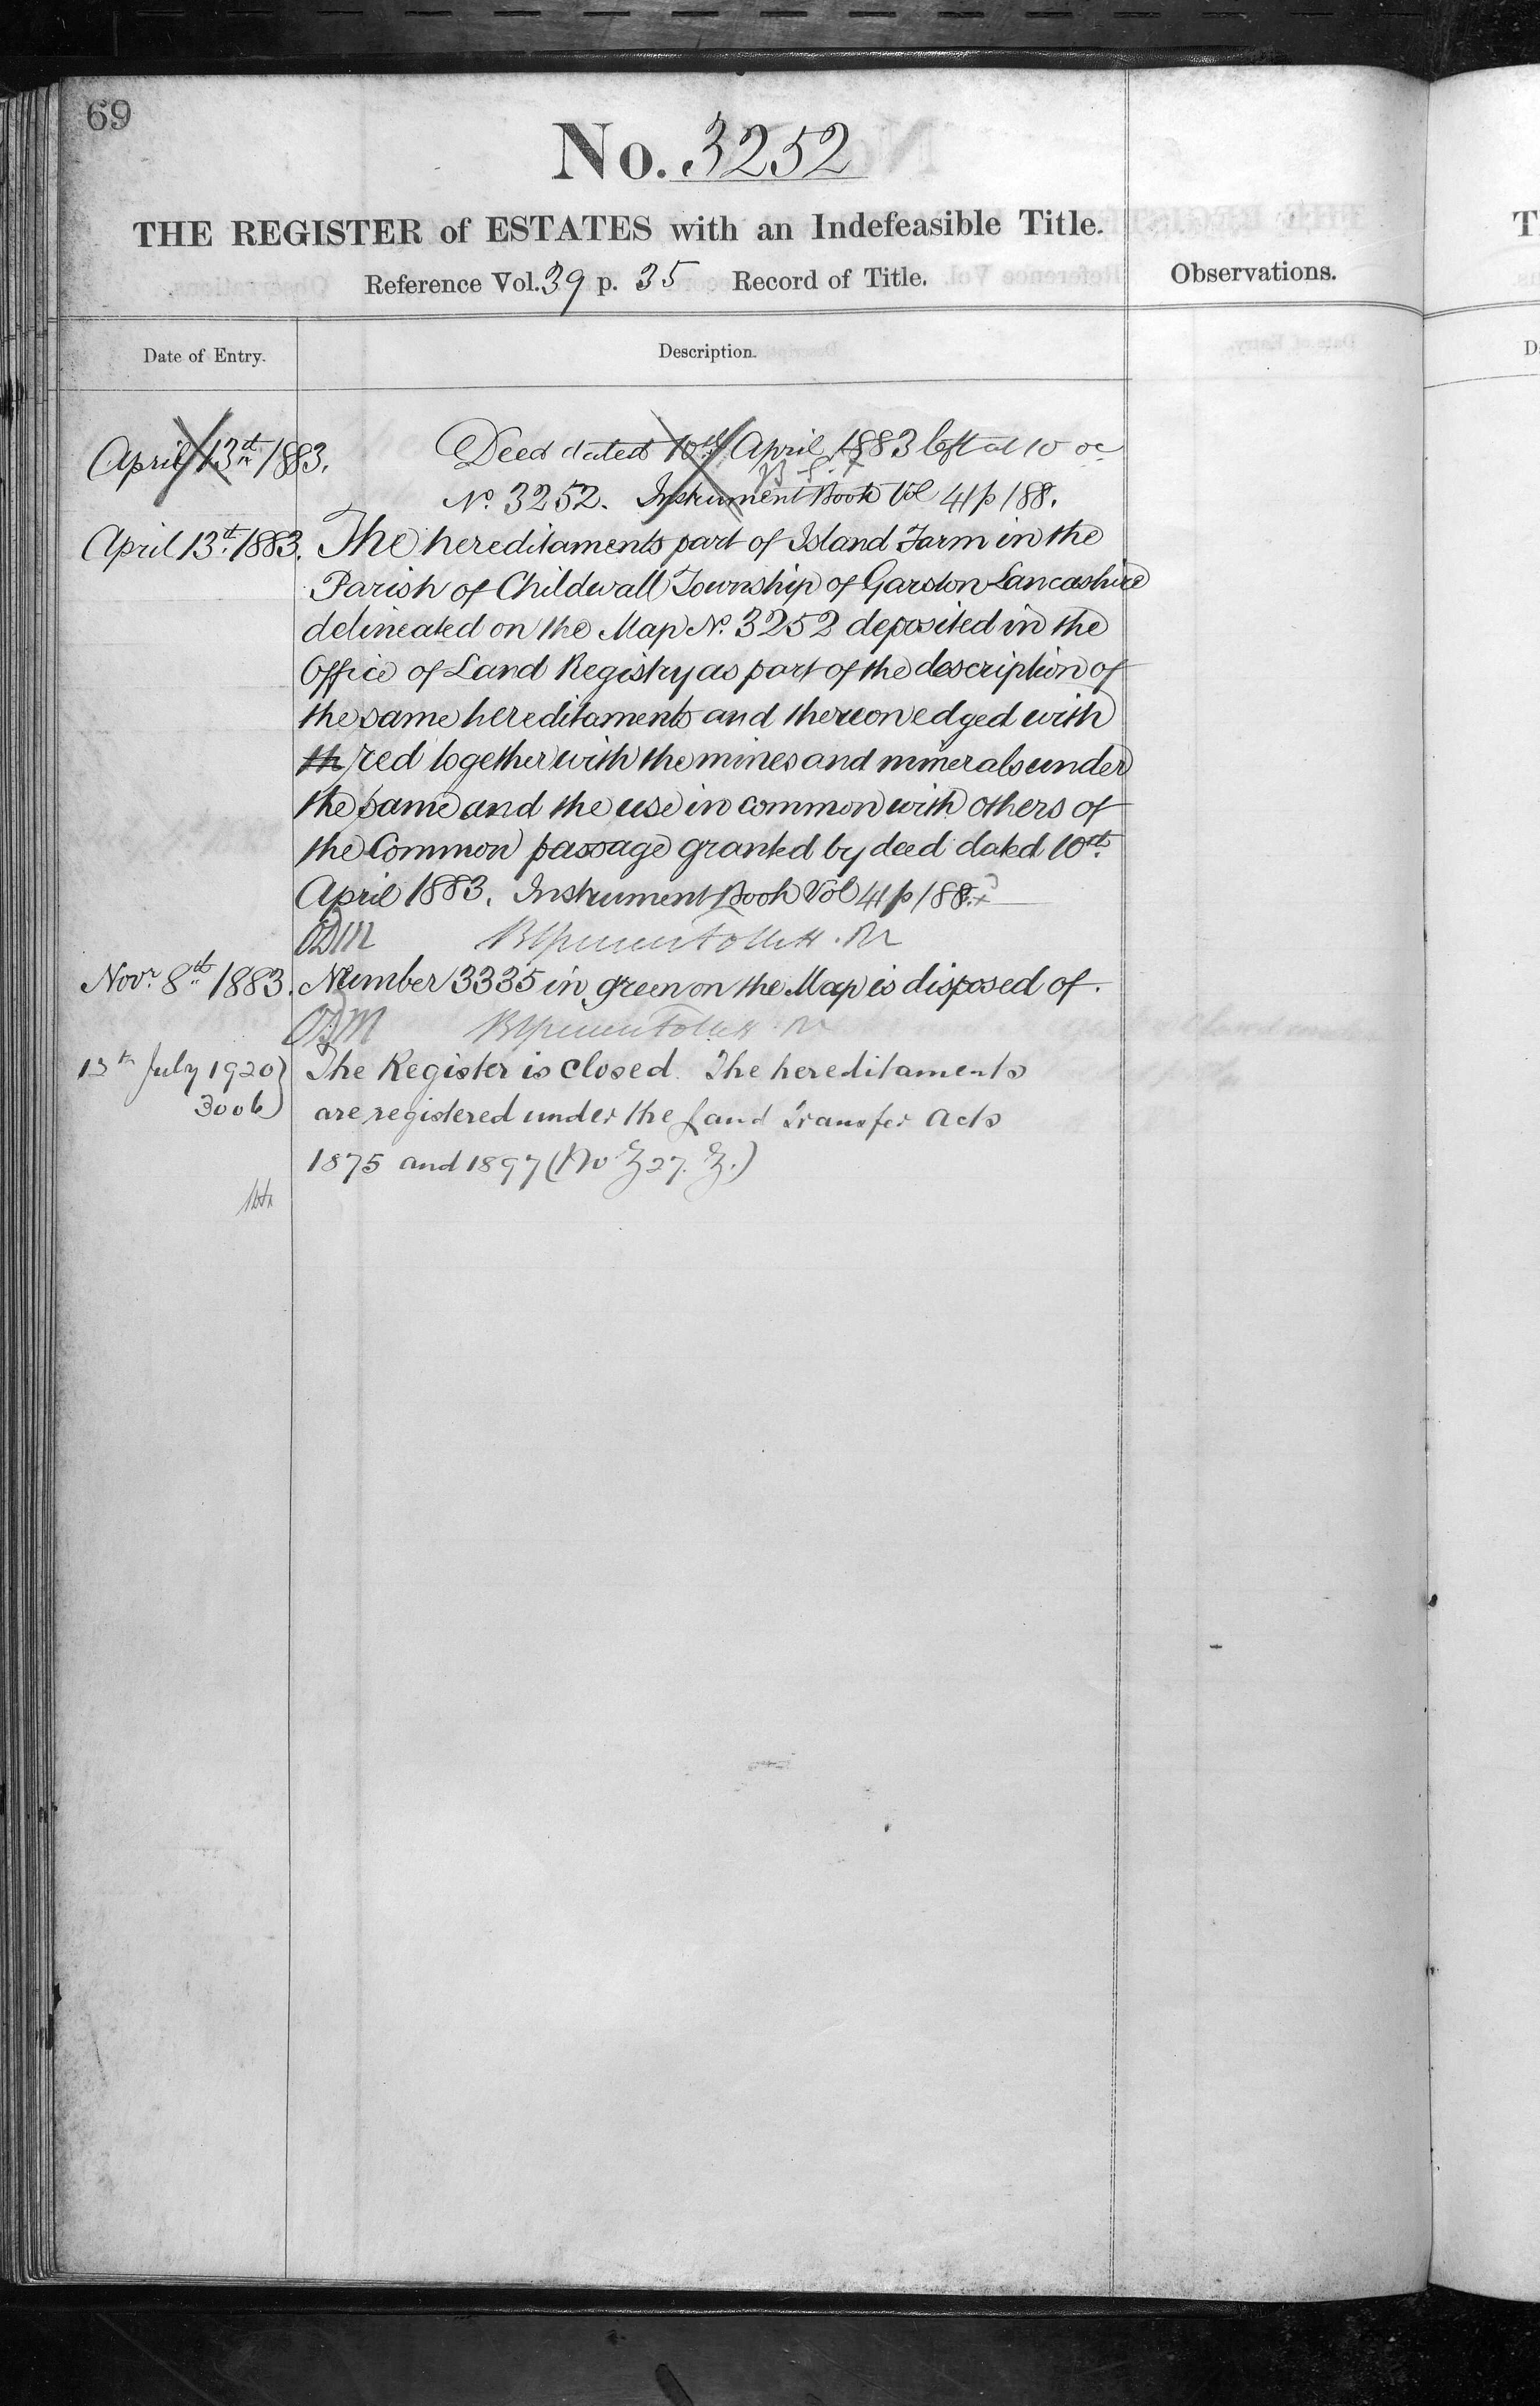 69
No. 3252
THE REGISTER of ESTATES with an Indefeasible Title.
Reference Vol. 39 p. 35 Record of Title.
Observations.
Date of Entry.
Description.
April 13th 1883. Deed dated 10th April 1883 left at 10 oc
No. 3252. Instrument Book Vol 41 p 188.
April 13th 1883. The hereditaments part of Island Farm in the
Parish of Childwall Township of Garston Lancashire
delineated on the Map No. 3252 deposited in the
Office of Land Registry as part of the description of
the same hereditaments and thereon edged with
th red together with the mines and minerals under
the same and the use in common with others of
the Common passage granted by deed dated 10th
April 1883. Instrument Book Vol 41 p 188.
Novr. 8th 1883. Number 3335 in green on the Map is disposed of.
13th July 1920 The Register is closed. The hereditaments
3006 are registered under the Land Transfer Acts
1875 and 1897